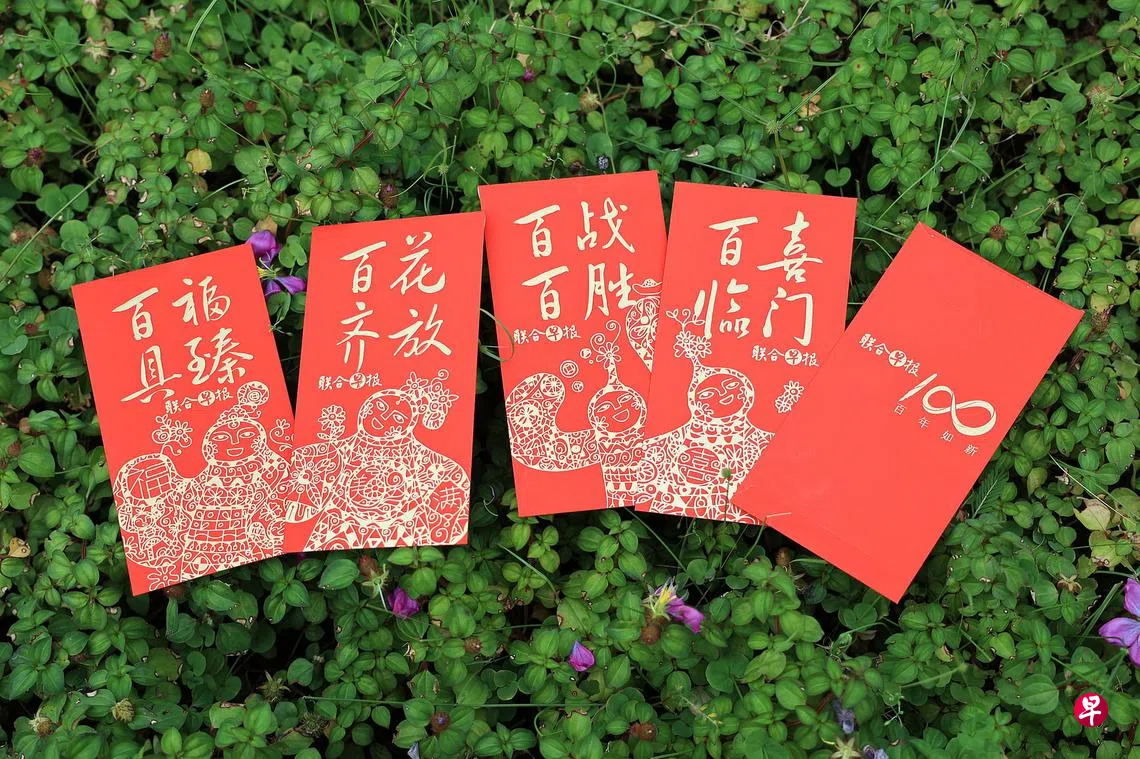 百福
具臻
联合早报
福
百花
齐放
联合早报
满
百战
百胜
联合早报
百喜
临门
联合早报
联合早报
100
百年如新
早